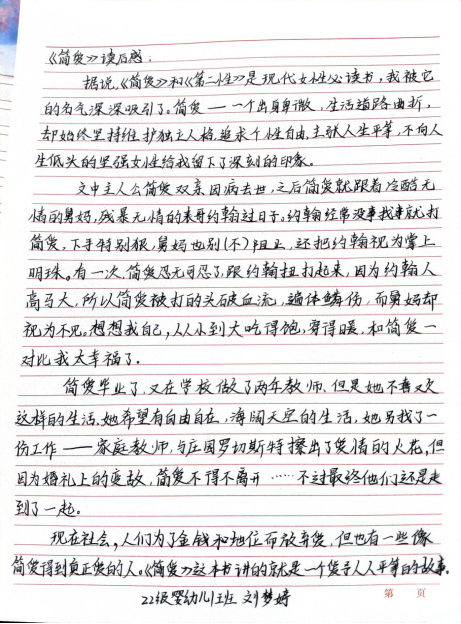 《简爱》读后感：
据说，《简爱》和《第二性》是现代女性必读书，我被它
的名气深深吸引了。简爱——一个出身卑微，生活道路曲折，
却始终坚持维护独立人格，追求个性自由，主张人生平等，不向人
生低头的坚强女性给我留下了深刻的印象。
文中主人公简爱双亲因病去世，之后简爱就跟着冷酷无
情的舅妈，残暴无情的表哥约翰过日子。约翰经常没事找事就打
简爱，下手特别狠，舅妈也别(不)阻止，还把约翰视为掌上
明珠。有一次，简爱忍无可忍了，跟约翰扭打起来，因为约翰人
高马大，所以简爱被打的头破血流，遍体鳞伤，而舅妈却
视为不见。想想我自己，从小到大吃得饱，穿得暖，和简爱一
对比我太幸福了。
简爱毕业了，又在学校做了两年教师，但是她不喜欢
这样的生活，她希望有自由自在，海阔天空的生活，她另找了一
份工作——家庭教师，与庄园罗切斯特擦出了爱情的火花，但
因为婚礼上的变故，简爱不得不离开……不过最终他们还是走
到了一起。
现在社会，人们为了金钱和地位而放弃爱，但也有一些像
简爱得到真正爱的人。《简爱》这本书讲的就是一个爱于人人平等的故事。
22级婴幼儿1班 刘梦婷
第 页